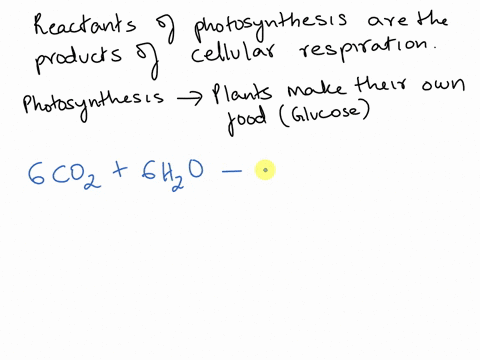 Reactants of photosynthesis are the
products of cellular respiration.
Photosynthesis → Plants make their own
food (Glucose)
6CO₂ + 6H₂O —